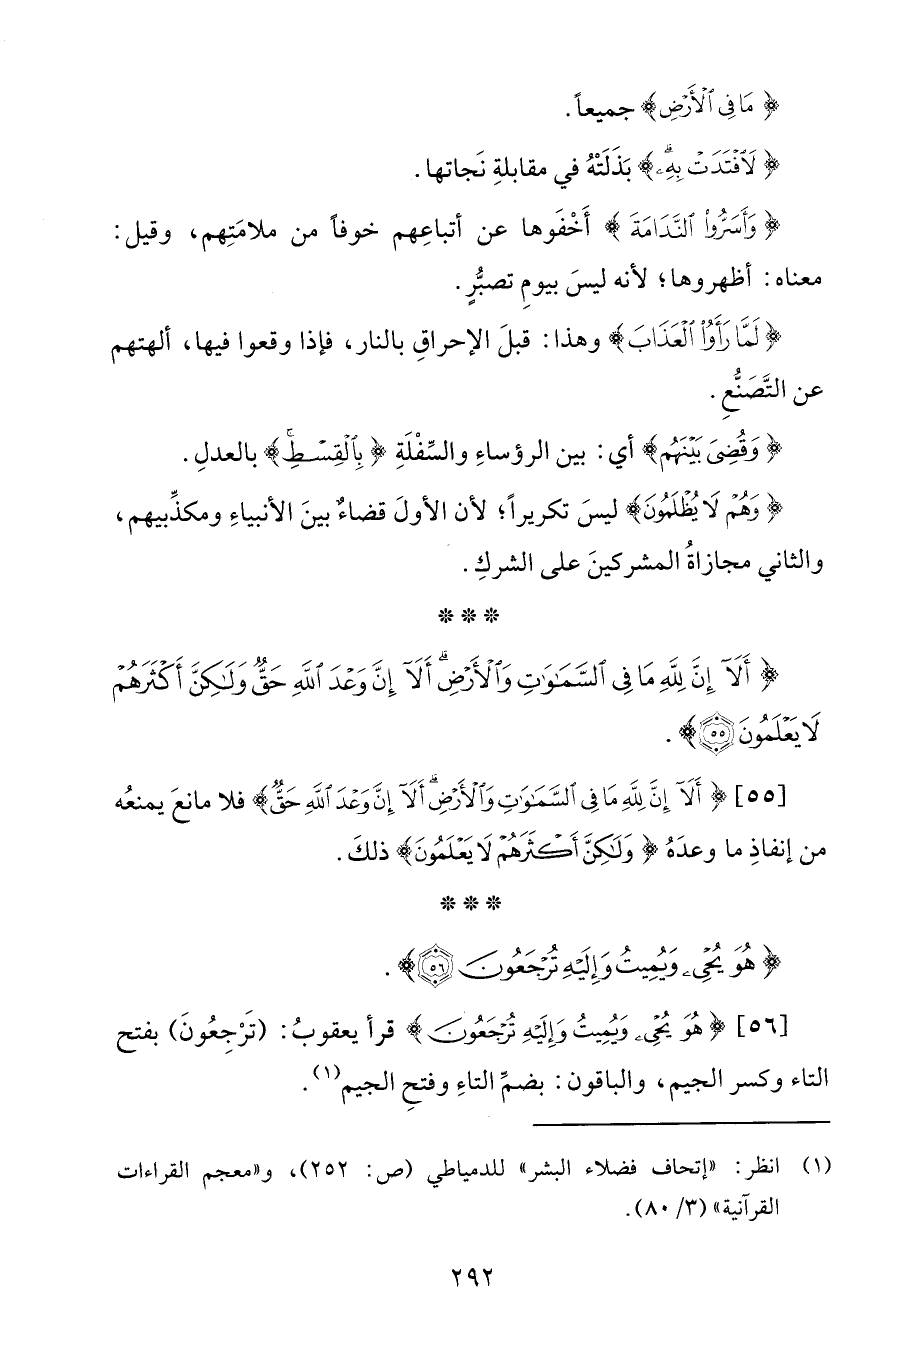 ﴿ مَا فِي ٱلْأَرْضِ﴾ جميعاً.
﴿ لَٱفْتَدَتْ بِهِۦۗ﴾ بَذَلَتْهُ في مقابلةِ نَجاتها.
﴿ وَأَسَرُّوا۟ ٱلنَّدَامَةَ ﴾ أَخْفَوها عن أتباعِهم خوفاً من ملامَتِهم، وقيل:
معناه: أظهروها؛ لأنه ليسَ بيومِ تصبُّرٍ.
﴿ لَمَّا رَأَوُا۟ ٱلْعَذَابَ﴾ وهذا: قبلَ الإحراقِ بالنار، فإذا وقعوا فيها، ألهتهم
عن التَّصَنُّعِ.
﴿ وَقُضِىَ بَيْنَهُم﴾ أي: بين الرؤساءِ والسِّفْلَةِ ﴿ بِٱلْقِسْطِۚ﴾ بالعدلِ.
﴿ وَهُمْ لَا يُظْلَمُونَ﴾ ليسَ تكريراً؛ لأن الأولَ قضاءٌ بينَ الأنبياءِ ومكذِّبيهم،
والثاني مجازاةُ المشركينَ على الشركِ.
❊ ❊ ❊
﴿ أَلَآ إِنَّ لِلَّهِ مَا فِي ٱلسَّمَـٰوَٰتِ وَٱلْأَرْضِۗ أَلَآ إِنَّ وَعْدَ ٱللَّهِ حَقٌّ وَلَـٰكِنَّ أَكْثَرَهُمْ
لَا يَعْلَمُونَ ٥٥﴾.
[٥٥] ﴿ أَلَآ إِنَّ لِلَّهِ مَا فِي ٱلسَّمَـٰوَٰتِ وَٱلْأَرْضِۗ أَلَآ إِنَّ وَعْدَ ٱللَّهِ حَقٌّ﴾ فلا مانعَ يمنعُه
من إنفاذِ ما وعدَهُ ﴿ وَلَـٰكِنَّ أَكْثَرَهُمْ لَا يَعْلَمُونَ﴾ ذلكَ.
❊ ❊ ❊
﴿ هُوَ يُحْيِۦ وَيُمِيتُ وَإِلَيْهِ تُرْجَعُونَ ٥٦﴾.
[٥٦] ﴿ هُوَ يُحْيِۦ وَيُمِيتُ وَإِلَيْهِ تُرْجَعُونَ ﴾ قرأ يعقوبُ: (تَرْجِعُونَ) بفتح
التاء وكسر الجيم، والباقون: بضمِّ التاءِ وفتحِ الجيم(١).
(١) انظر: «إتحاف فضلاء البشر» للدمياطي (ص: ٢٥٢)، و«معجم القراءات
القرآنية» (٣/ ٨٠).
٢٩٢